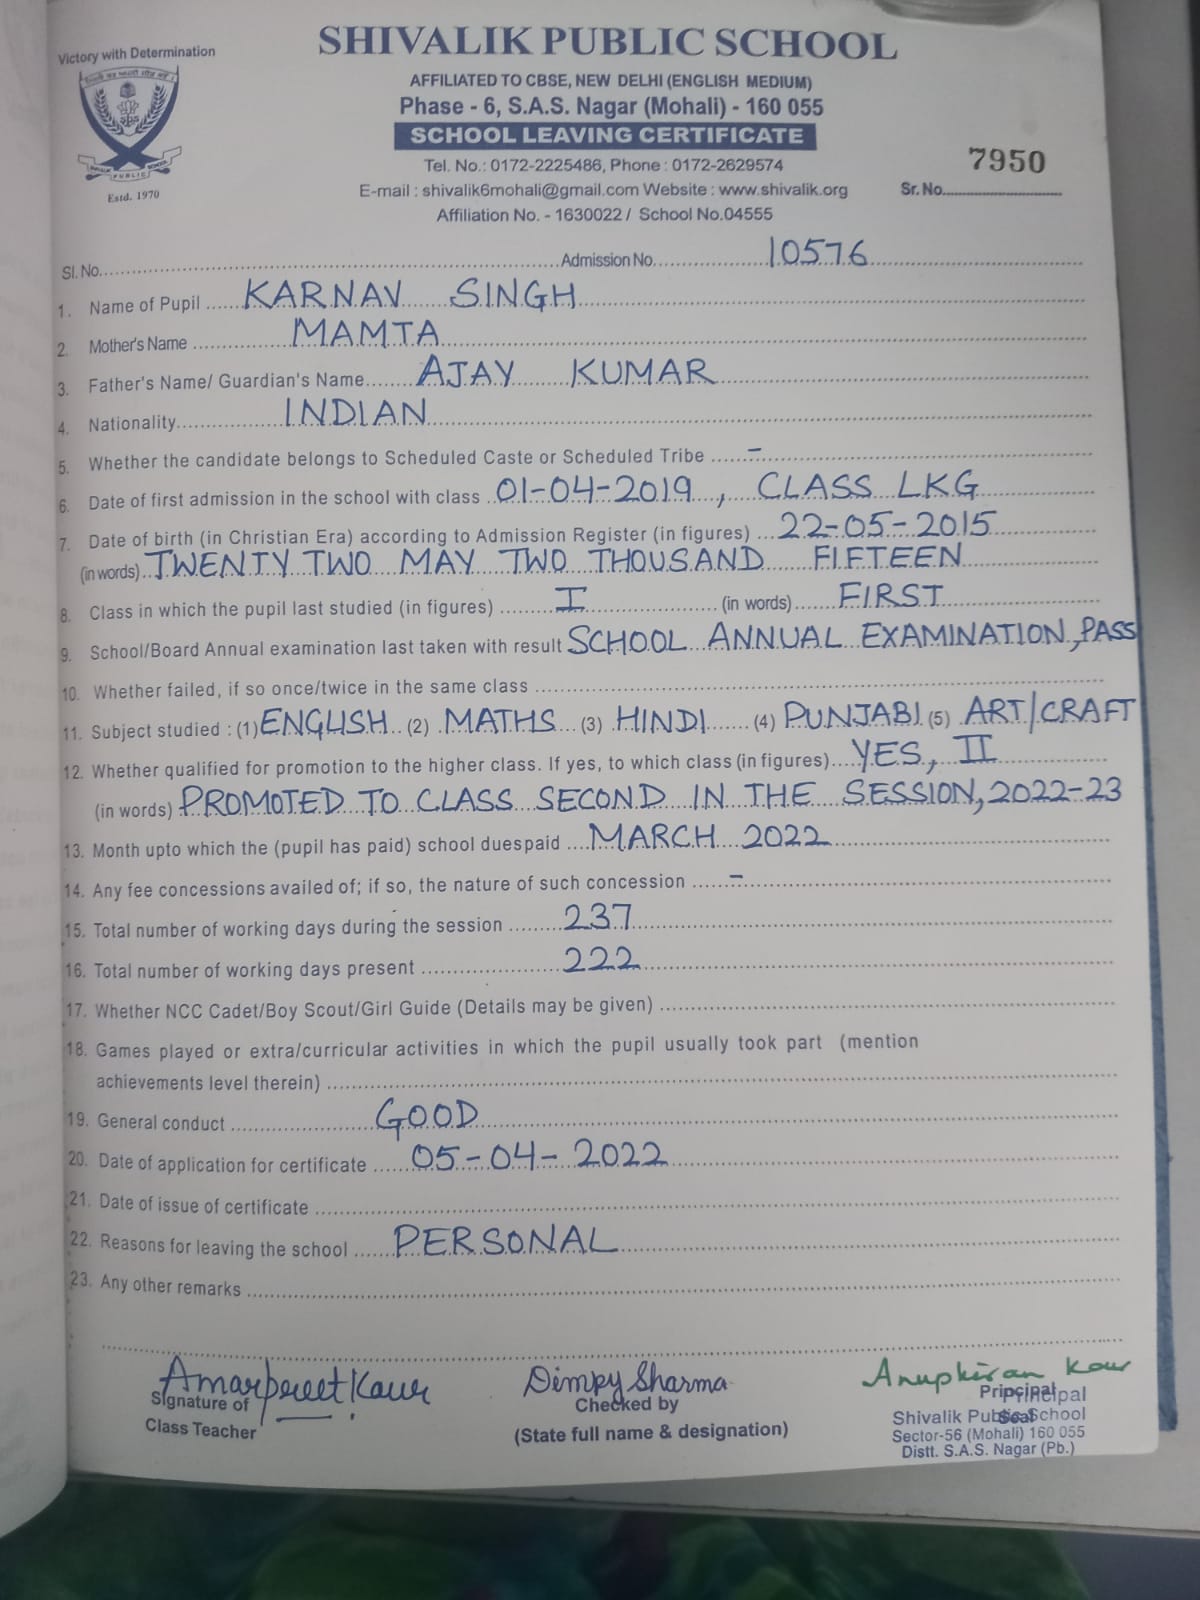 Victory with Determination
SHIVALIK PUBLIC SCHOOL
AFFILIATED TO CBSE, NEW DELHI (ENGLISH MEDIUM)
Phase - 6, S.A.S. Nagar (Mohali) - 160 055
SCHOOL LEAVING CERTIFICATE
Tel. No.: 0172-2225486, Phone : 0172-2629574
7950
E-mail : shivalik6mohali@gmail.com Website : www.shivalik.org
Sr. No.
Estd. 1970
Affiliation No. - 1630022 / School No.04555
Sl. No. Admission No. 10576
1. Name of Pupil KARNAV SINGH
2. Mother's Name MAMTA
3. Father's Name/ Guardian's Name AJAY KUMAR
4. Nationality INDIAN
5. Whether the candidate belongs to Scheduled Caste or Scheduled Tribe -
6. Date of first admission in the school with class 01-04-2019, CLASS LKG
7. Date of birth (in Christian Era) according to Admission Register (in figures) 22-05-2015
(in words) TWENTY TWO MAY TWO THOUSAND FIFTEEN
8. Class in which the pupil last studied (in figures) I (in words) FIRST
9. School/Board Annual examination last taken with result SCHOOL ANNUAL EXAMINATION, PASS
10. Whether failed, if so once/twice in the same class
11. Subject studied : (1) ENGLISH (2) MATHS (3) HINDI (4) PUNJABI (5) ART/CRAFT
12. Whether qualified for promotion to the higher class. If yes, to which class (in figures) YES, II
(in words) PROMOTED TO CLASS SECOND IN THE SESSION, 2022-23
13. Month upto which the (pupil has paid) school duespaid MARCH 2022
14. Any fee concessions availed of; if so, the nature of such concession -
15. Total number of working days during the session 237
16. Total number of working days present 222
17. Whether NCC Cadet/Boy Scout/Girl Guide (Details may be given)
18. Games played or extra/curricular activities in which the pupil usually took part (mention
achievements level therein)
19. General conduct GOOD
20. Date of application for certificate 05-04-2022
21. Date of issue of certificate
22. Reasons for leaving the school PERSONAL
23. Any other remarks
Amarpreet Kaur Dimpy Sharma Anupkiran Kaur
Signature of Checked by Principal Principal
Class Teacher (State full name & designation) Seal Shivalik Public School
Sector-56 (Mohali) 160 055
Distt. S.A.S. Nagar (Pb.)